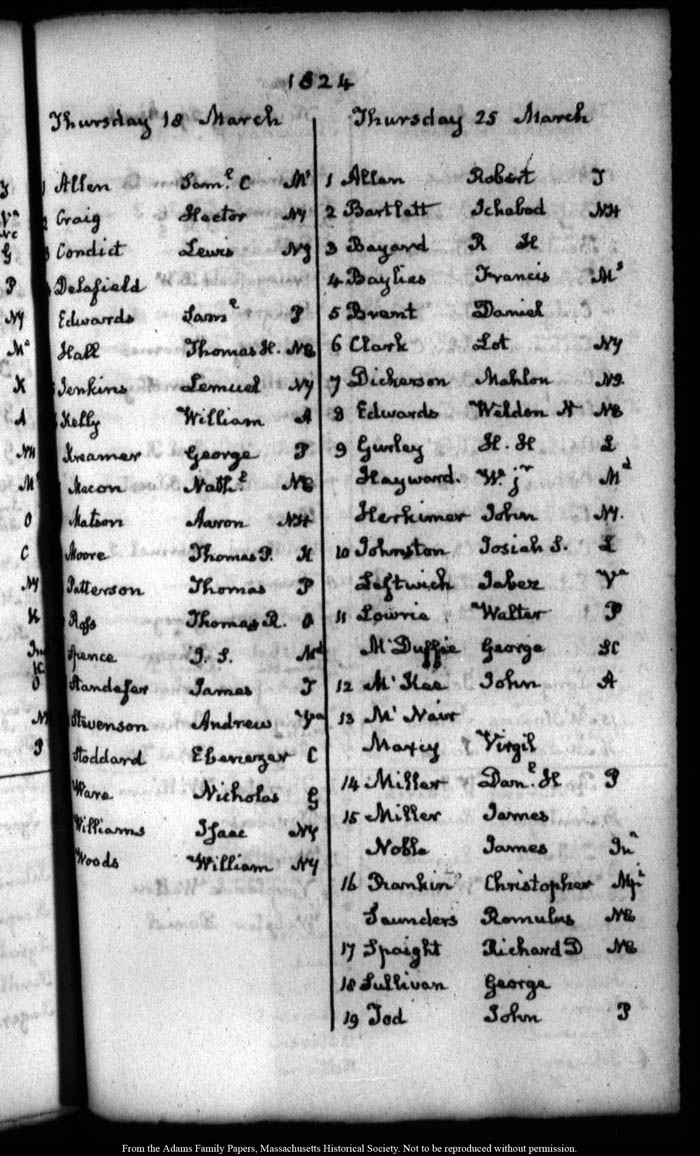 1824
Thursday 18 March
1 Allen Sam.l C Ms
2 Craig Hector NY
3 Condict Lewis NJ
Delafield
Edwards Sam.l P
Hall Thomas H. NC
Jenkins Lemuel NY
Kelly William A
Kreamer George P
Macon Nath.l NC
Matson Aaron NH
Moore Thomas P. K
Patterson Thomas P
Ross Thomas R. O
Spence J. S. Md
Standefer James T
Stevenson Andrew Va
Stoddard Ebenezer C
Ware Nicholas G
Williams Isaac NY
Woods William NY
Thursday 25 March
1 Allen Robert T
2 Bartlett Ichabod NH
3 Bayard R H
4 Baylies Francis Ms
5 Brent Daniel
6 Clark Lot NY
7 Dickerson Mahlon NJ.
8 Edwards Weldon N NC
9 Gurley H. H L
Hayward. W. jr Md
Herkimer John NY.
10 Johnston Josiah S. L
Leftwich Jabez Va
11 Lowrie Walter P
McDuffie George SC
12 McKee John A
13 McNair
Maxcy Virgil
14 Miller Dan.l H P
15 Miller James
Noble James Ina
16 Rankin Christopher Mpi
Saunders Romulus NC
17 Spaight Richard D NC
18 Sullivan George
19 Tod John P
From the Adams Family Papers, Massachusetts Historical Society. Not to be reproduced without permission.